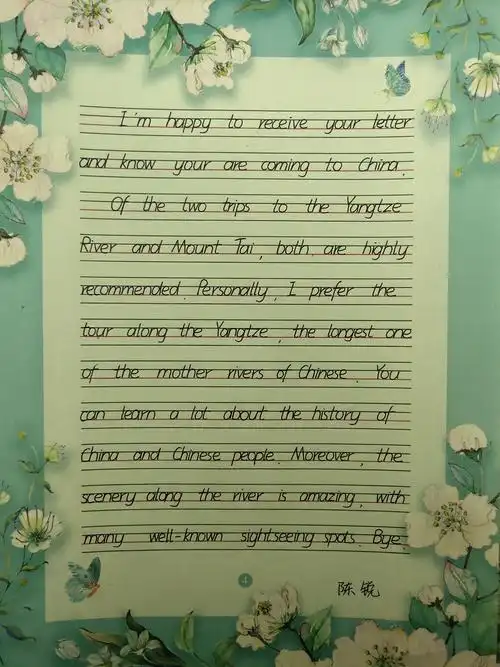 I'm happy to receive your letter
and know your are coming to China.
Of the two trips to the Yangtze
River and Mount Tai, both are highly
recommended. Personally, I prefer the
tour along the Yangtze, the longest one
of the mother rivers of Chinese. You
can learn a lot about the history of
China and Chinese people. Moreover, the
scenery along the river is amazing, with
many well-known sightseeing spots. Bye.
4
陈锐